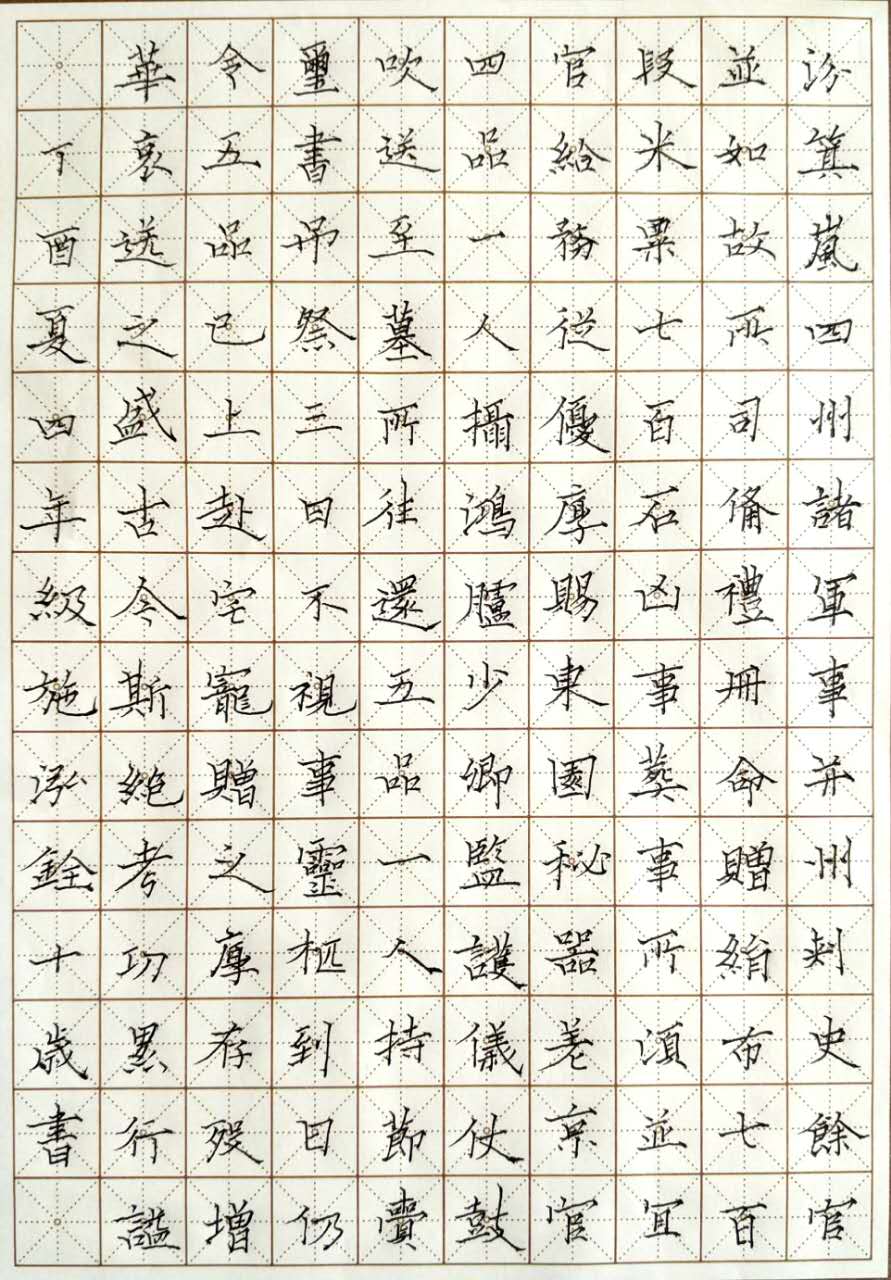 汾箕嵐四州諸軍事并州刺史餘官
並如故所司備禮冊命贈絹布七百
段米粟七百石凶事葬事所須並宜
官給務從優厚賜東園秘器差京官
四品一人攝鴻臚少卿監護儀仗鼓
吹送至墓所往還五品一人持節齎
璽書弔祭三日不視事靈柩到日仍
令五品已上赴宅寵贈之厚存歿增
華哀送之盛古今斯絕考功累行謚
丁酉夏四年級施泓銓十歲書